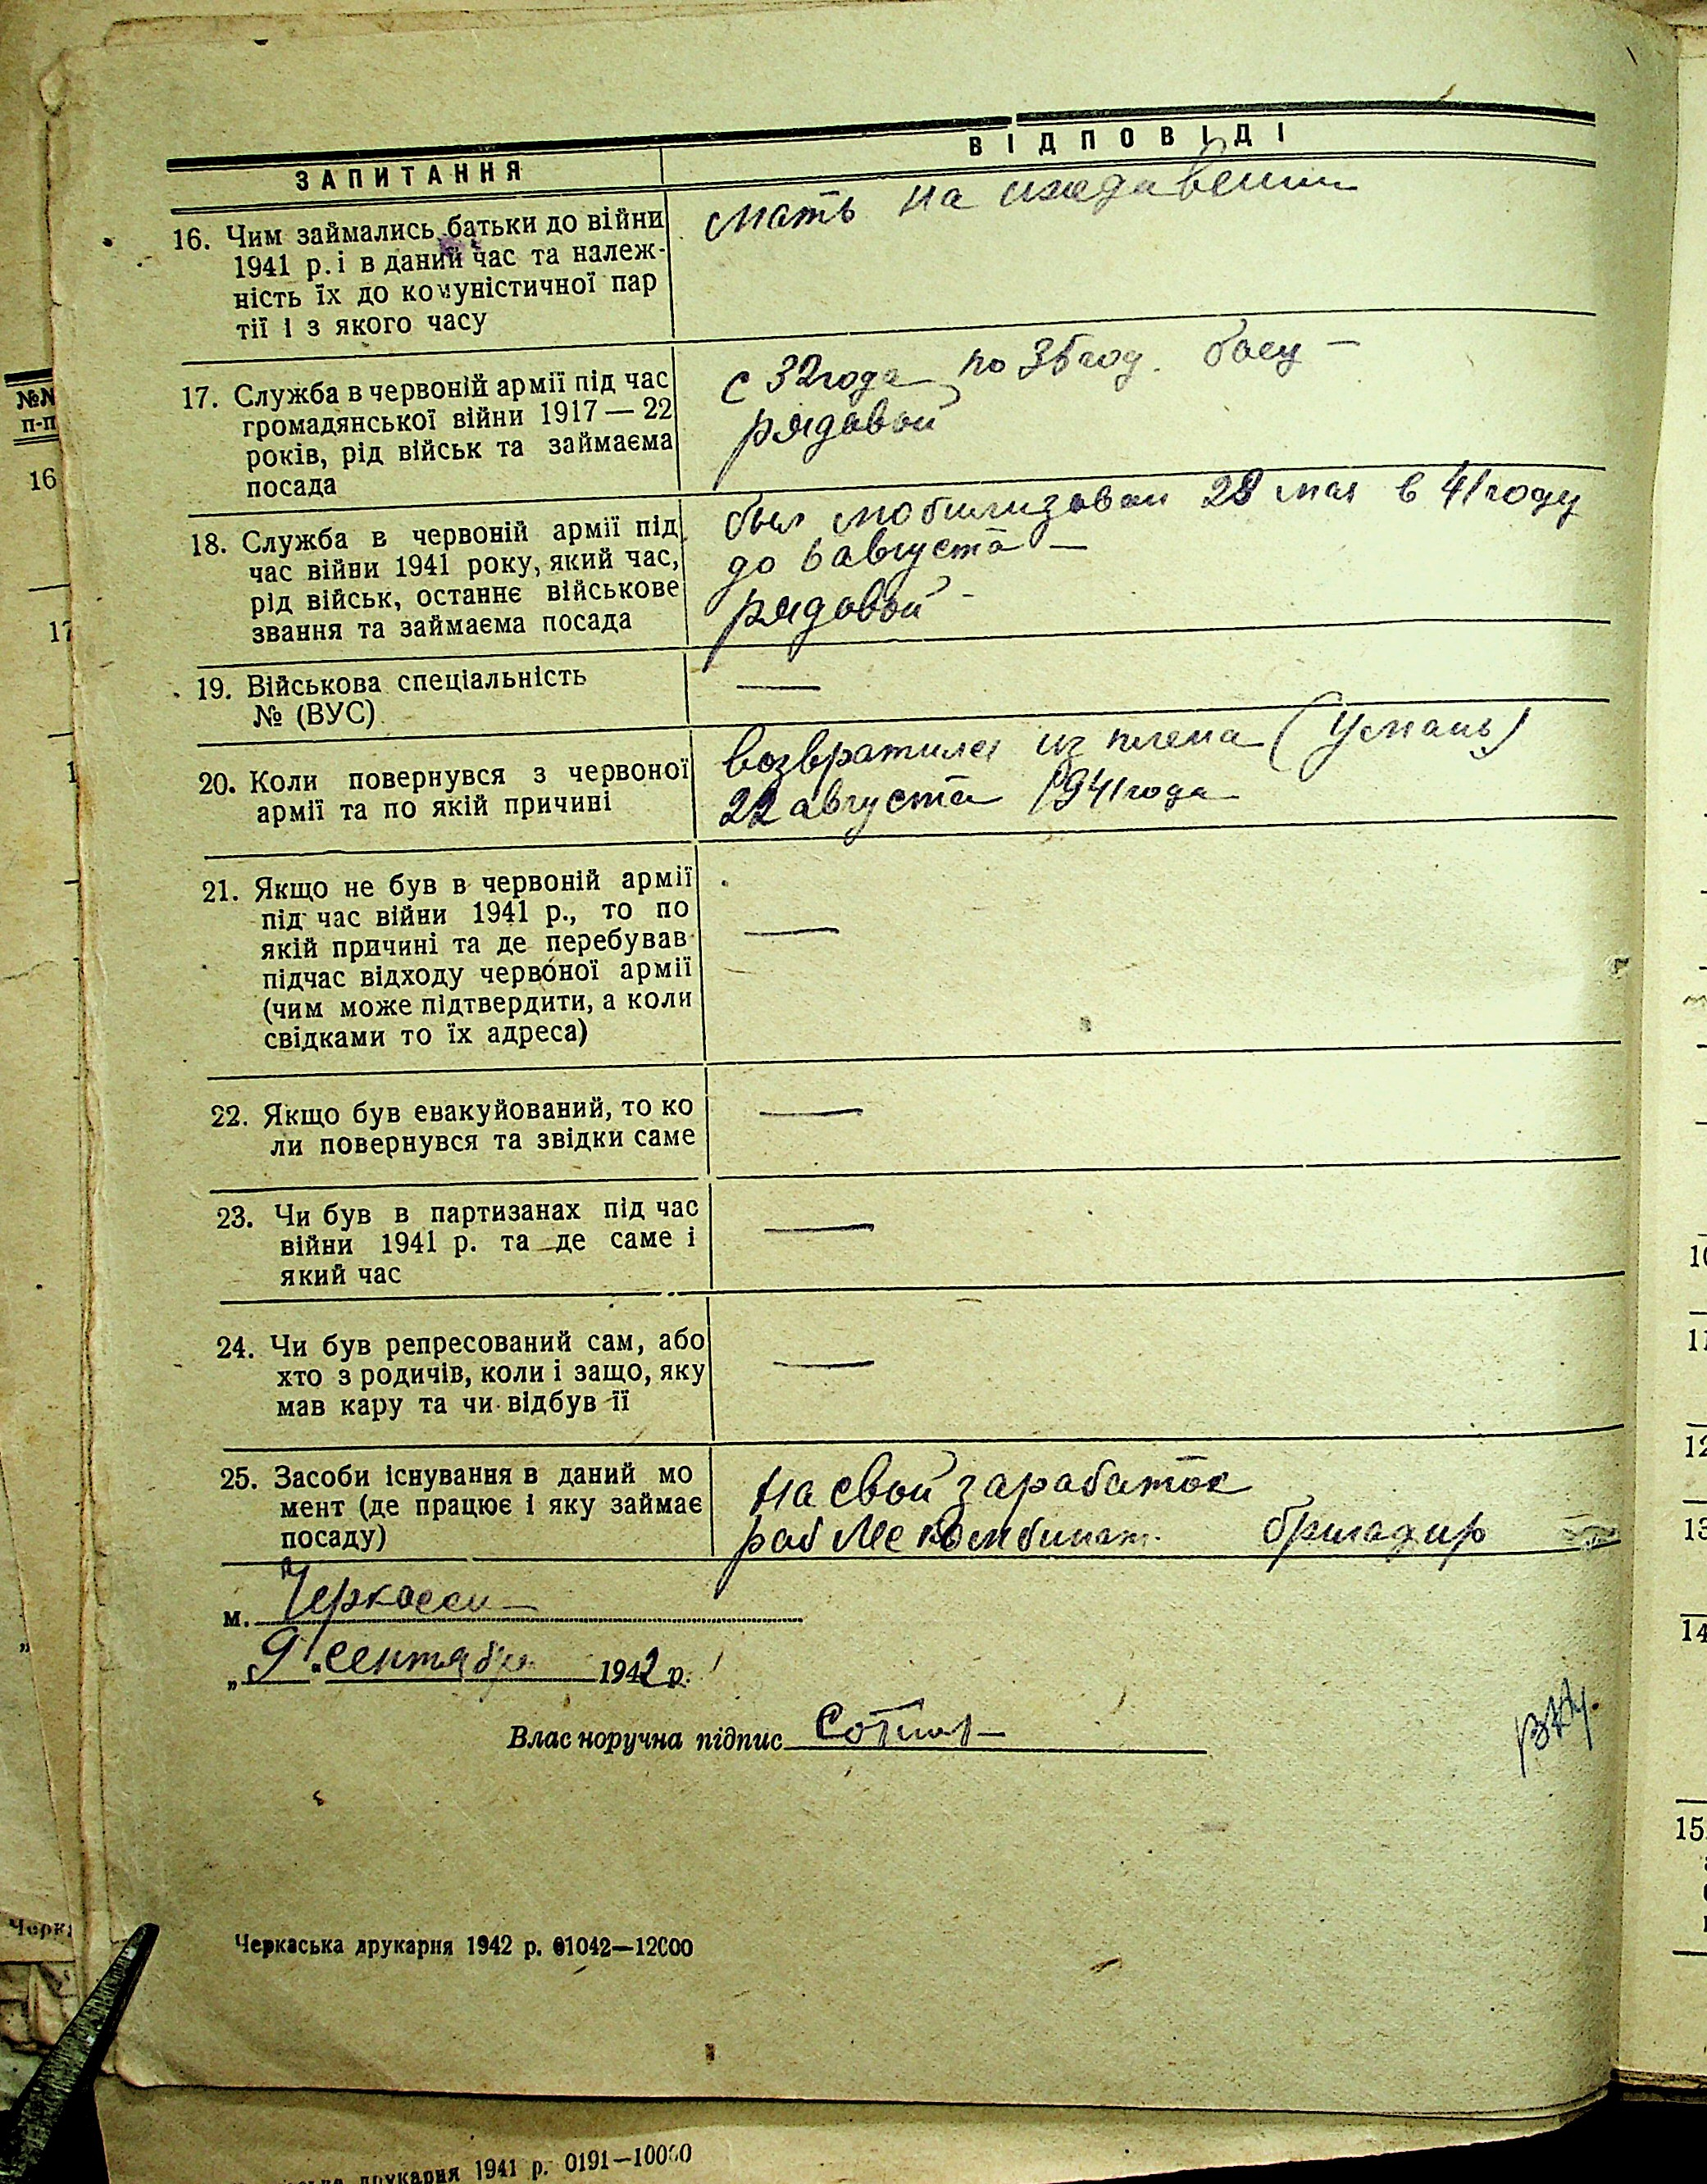 ЗАПИТАННЯ
ВІДПОВІДІ
16. Чим займались батьки до війни
1941 р. і в даний час та належ-
ність їх до комуністичної пар
тії і з якого часу
мать на иждевении
17. Служба в червоній армії під час
громадянської війни 1917 — 22
років, рід військ та займаєма
посада
с 32 года по 36 год.
рядовой
18. Служба в червоній армії під
час війни 1941 року, який час,
рід військ, останнє військове
звання та займаєма посада
был мобилизован 28 мая в 41 году
до 6 августа —
рядовой
19. Військова спеціальність
№ (ВУС)
—
20. Коли повернувся з червоної
армії та по якій причині
возвратился из плена (Умань)
22 августа 1941 года
21. Якщо не був в червоній армії
під час війни 1941 р., то по
якій причині та де перебував
підчас відходу червоної армії
(чим може підтвердити, а коли
свідками то їх адреса)
—
22. Якщо був евакуйований, то ко
ли повернувся та звідки саме
—
23. Чи був в партизанах під час
війни 1941 р. та де саме і
який час
—
24. Чи був репресований сам, або
хто з родичів, коли і защо, яку
мав кару та чи відбув її
—
25. Засоби існування в даний мо
мент (де працює і яку займає
посаду)
на свой заработок
раб бригадир
м. Черкассы
„9" сентября 1942 р.
Власноручна підпис
Черкаська друкарня 1942 р. 01042—12000
друкарня 1941 р. 0191—10000
№№
п-п
16
17
10
11
12
13
14
15